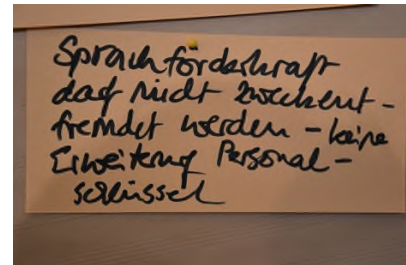 Sprachförderkraft
darf nicht zweckent-
fremdet werden - keine
Erweiterung Personal-
schlüssel